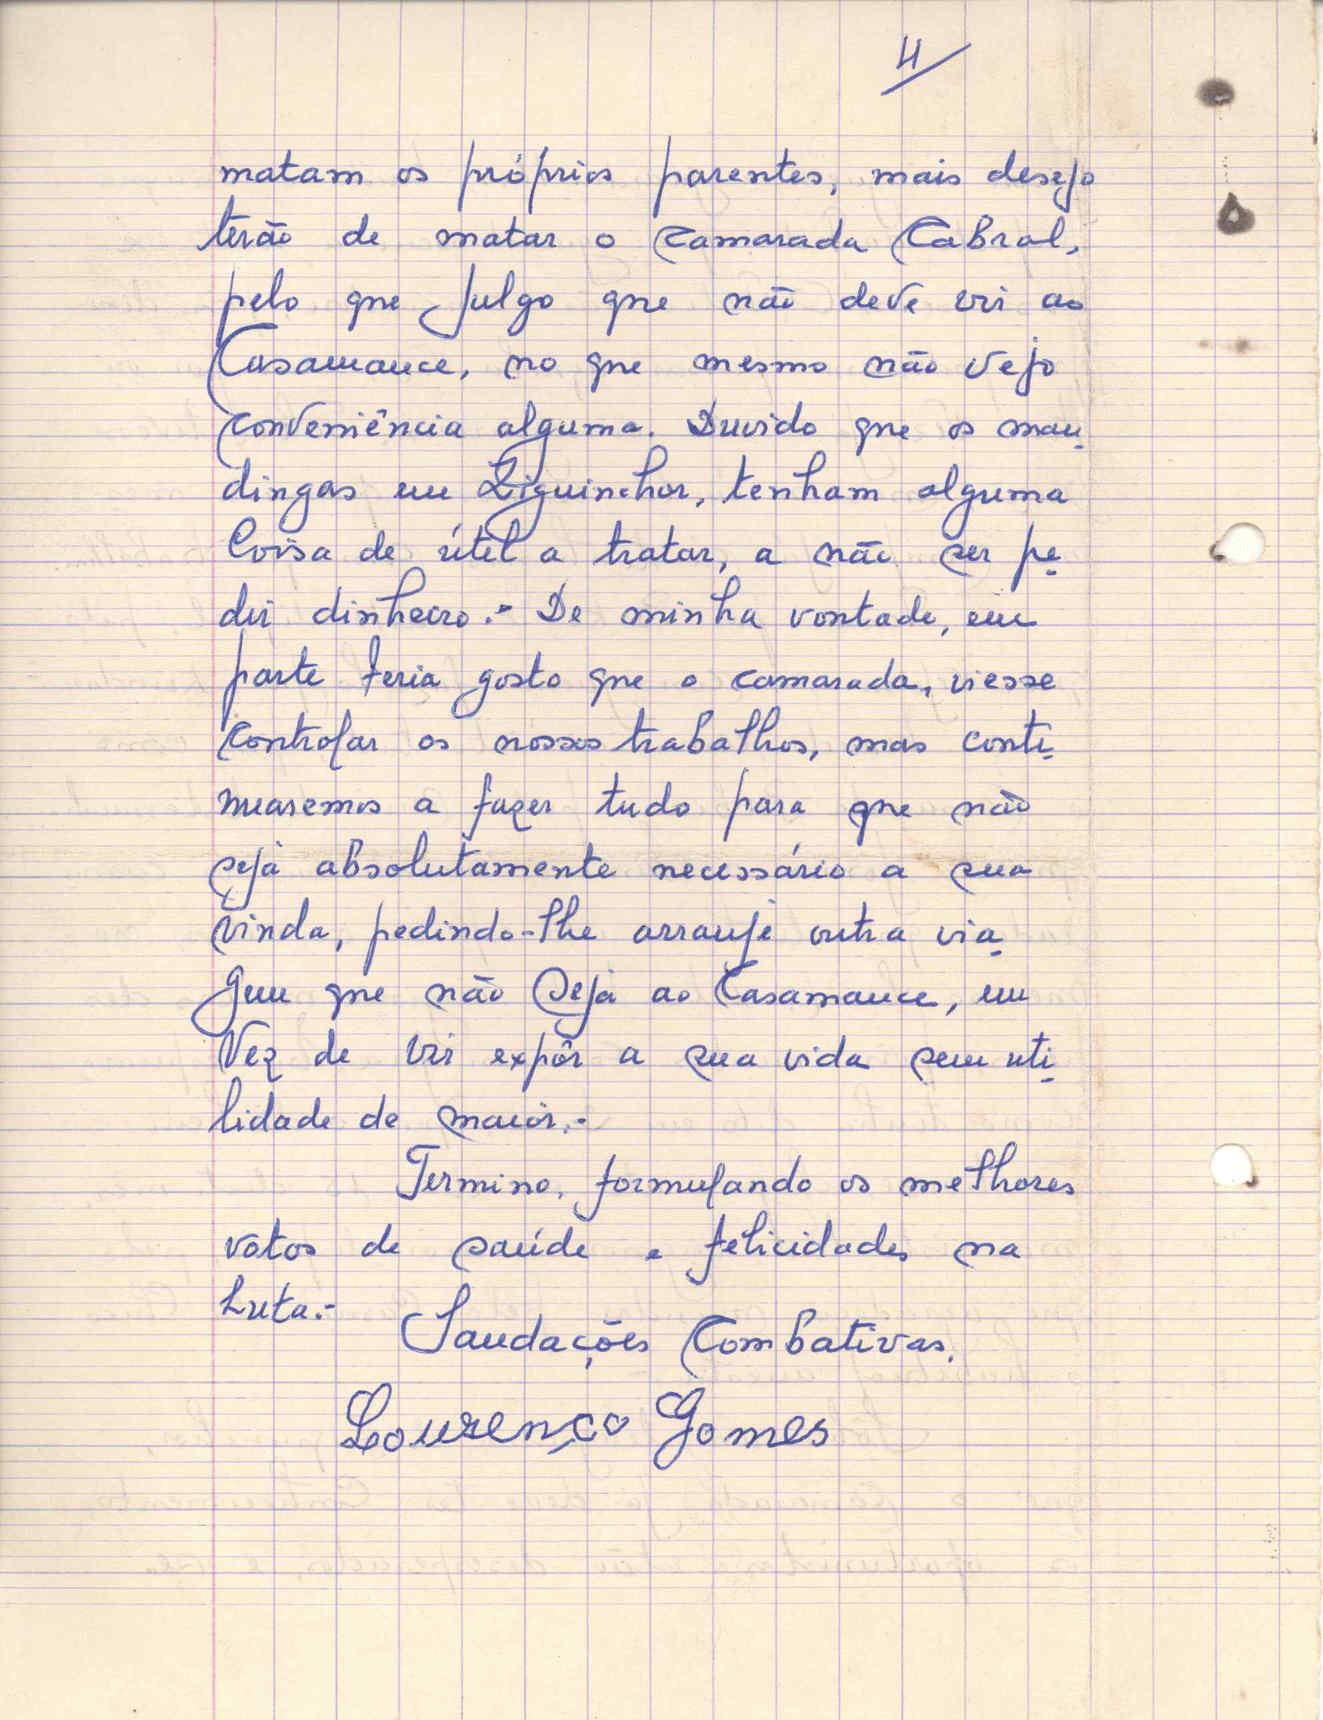 4
matam os próprios parentes, mais desejo
terão de matar o camarada Cabral,
pelo que julgo que não deve vir ao
Casamance, no que mesmo não vejo
conveniência alguma. Duvido que os man-
dingas em Ziguinchor, tenham alguma
Coisa de útil a tratar, a não ser pe-
dir dinheiro.- De minha vontade, em
parte teria gosto que o camarada, viesse
controlar os nossos trabalhos, mas conti-
nuaremos a fazer tudo para que não
sejà absolutamente necessário a sua
vinda, pedindo-lhe arranje outra via-
gem que não Sejà ao Casamance, em
Vez de vir expôr a sua vida sem uti-
lidade de maior.-
Termino, formulando os melhores
votos de saúde e felicidades na
Luta.-
Saudações Combativas.
Lourenço Gomes